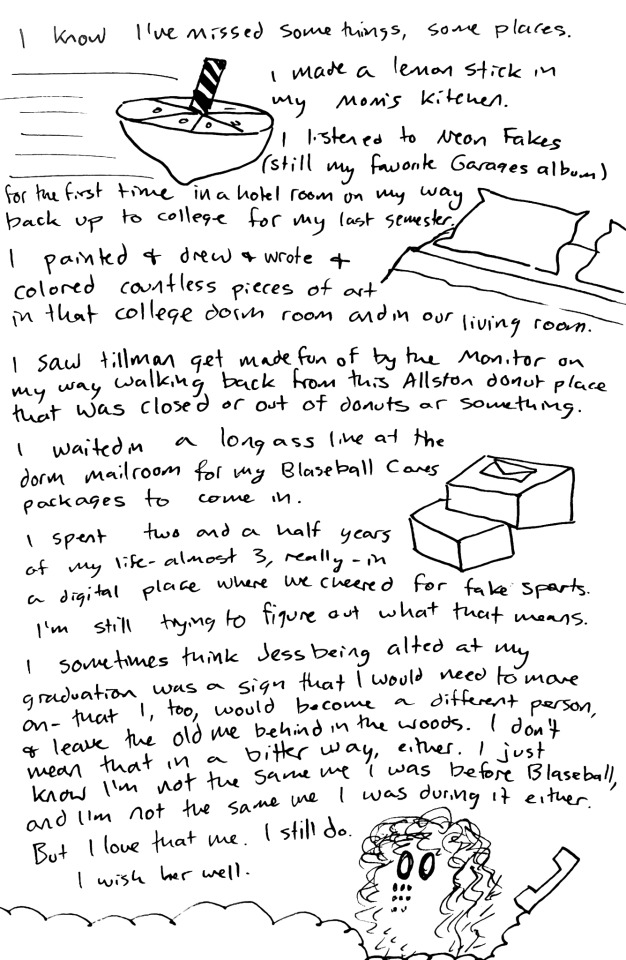 I know I've missed some things, some places.
I made a lemon stick in
my mom's kitchen.
I listened to Neon Fakes
(still my favorite Garages album)
for the first time in a hotel room on my way
back up to college for my last semester.
I painted & drew & wrote &
colored countless pieces of art
in that college dorm room and in our living room.
I saw tillman get made fun of by the Monitor on
my way walking back from this Allston donut place
that was closed or out of donuts or something.
I waited in a long ass line at the
dorm mailroom for my Blaseball Cares
packages to come in.
I spent two and a half years
of my life - almost 3, really - in
a digital place where we cheered for fake sports.
I'm still trying to figure out what that means.
I sometimes think Jess being alted at my
graduation was a sign that I would need to move
on - that I, too, would become a different person,
& leave the old me behind in the woods. I don't
mean that in a bitter way, either. I just
know I'm not the same me I was before Blaseball,
and I'm not the same me I was during it either.
But I love that me. I still do.
I wish her well.